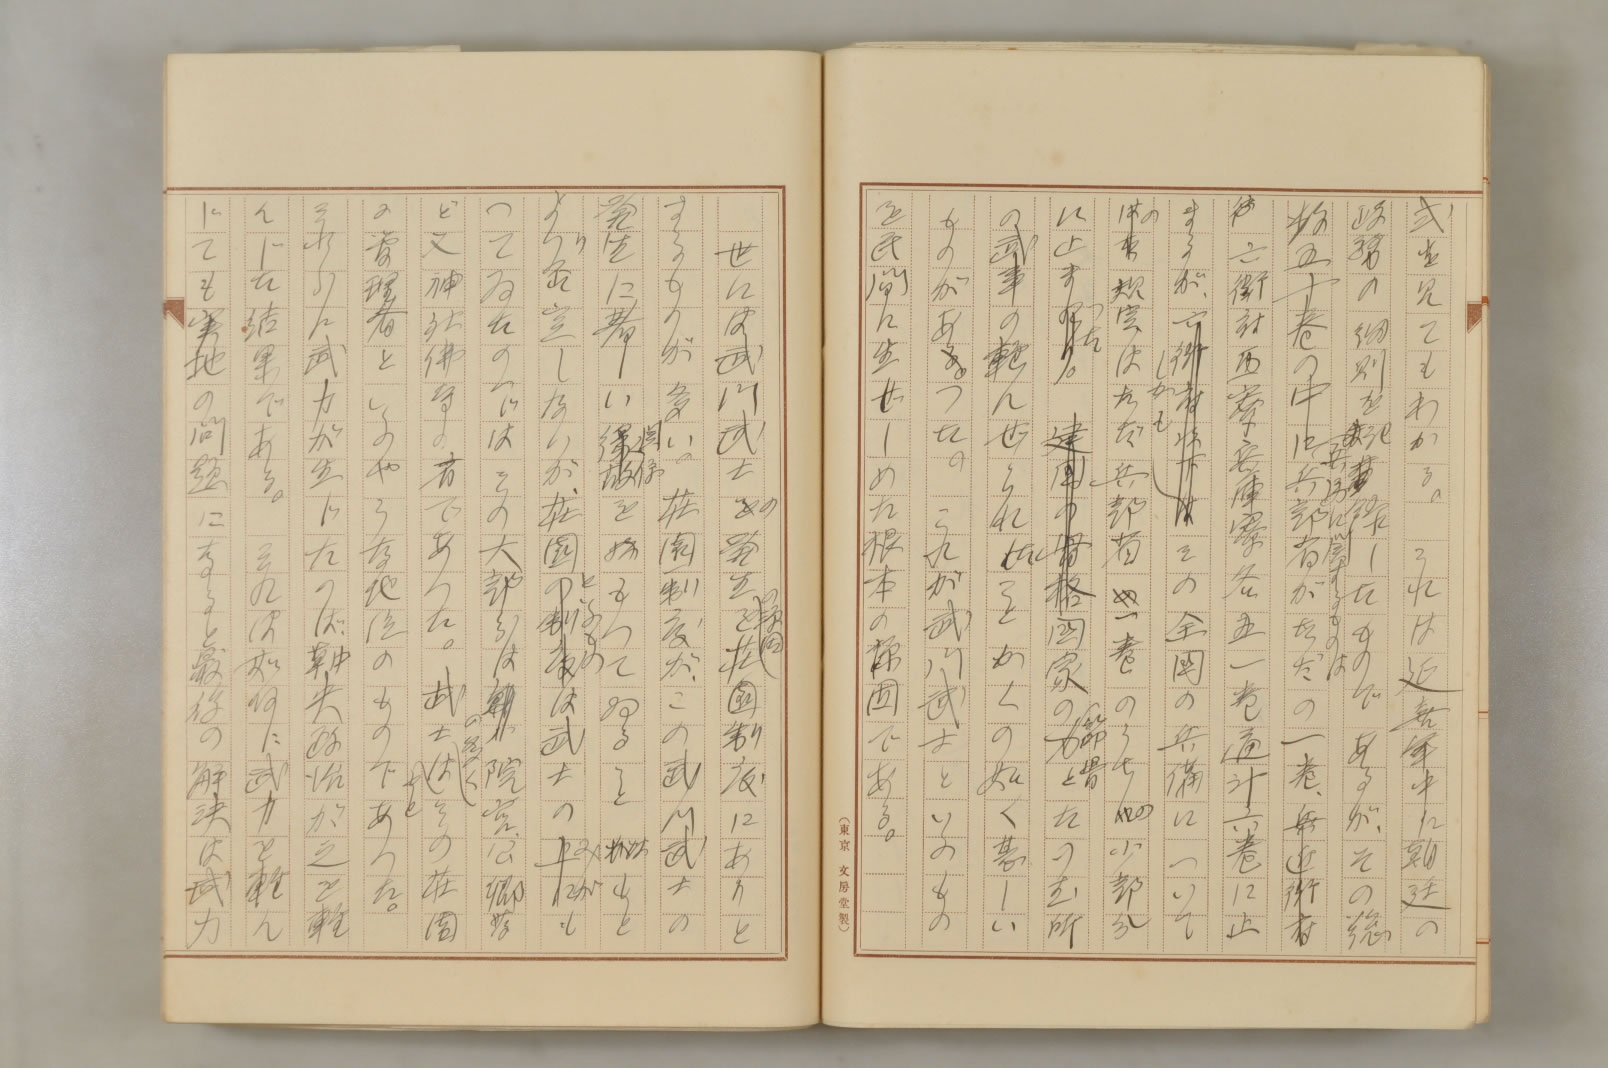 式を見てもわかる。それは延喜年中に朝廷の
政務の細則を記録したものであるが、その総
兵備に関するものは
数五十巻の中に兵部省がただの一巻、近衛府
六衛府両寮兵庫寮各五一巻通計六巻に止
まるが、六衛府
しかも
その全国の兵備について
の規定はただ兵部省一巻のうちの小部分
に止まつた。建国の骨格国家の
筋骨
力とたのむ所
の武事の軽んぜられたことかくの如く甚しい
ものがあつた。これが武門武士といふもの
を民間に生ぜしめた根本の原因である。
(東京 文房堂製)
世には武門武士の発生の原因を荘園制度にありと
するものが多い。荘園制度がこの武門武士の
発生に著しい
関係
縁故をもつてゐること
より否定しないが、荘園の制度
といふもの
は武士の
みが
つてゐたのではその大部分は院宮、公卿等
ど又神社佛寺の方であつた。武士は
その荘園
の管理者といふやうな地位のものであつた。
それらに武力が生じたのは、朝廷の政治が之を軽
んじた結果である。それは如何に武力を軽ん
じても実地の問題になると最後の解決は武力